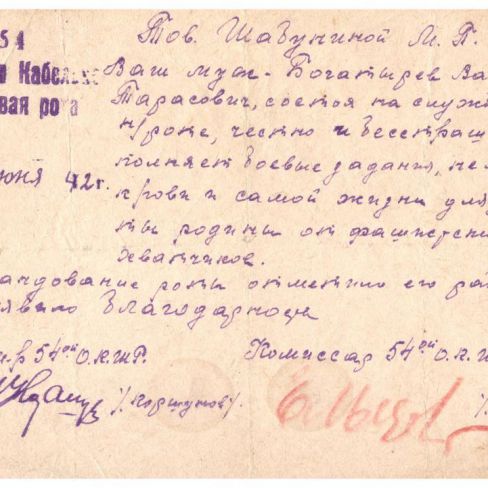 54
Кабельно
вая рота
июня 42г.
Тов. Шабуниной М. П.
Ваш муж - Богатырев Ва
Тарасович, состоя на служ
н/роте, честно и бесстраш
полняет боевые задания, не
крови и самой жизни для
ты родины от фашистски
хватчиков.
андование роты отметило его ра
явило благодарност
54ой О.К.Ш.Р.
Комиссар 54ой О.К.Ш
/Коршунов/.